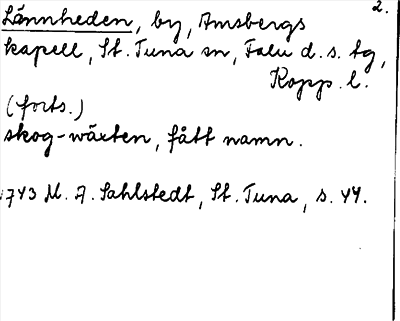 2.
Lännheden, by, Amsbergs
kapell, St. Tuna sn, Falu d. s. tg,
Kopp. l.
(forts.)
skog-wäxten, fått namn.
1743 M. A. Sahlstedt, St. Tuna, s. 44.